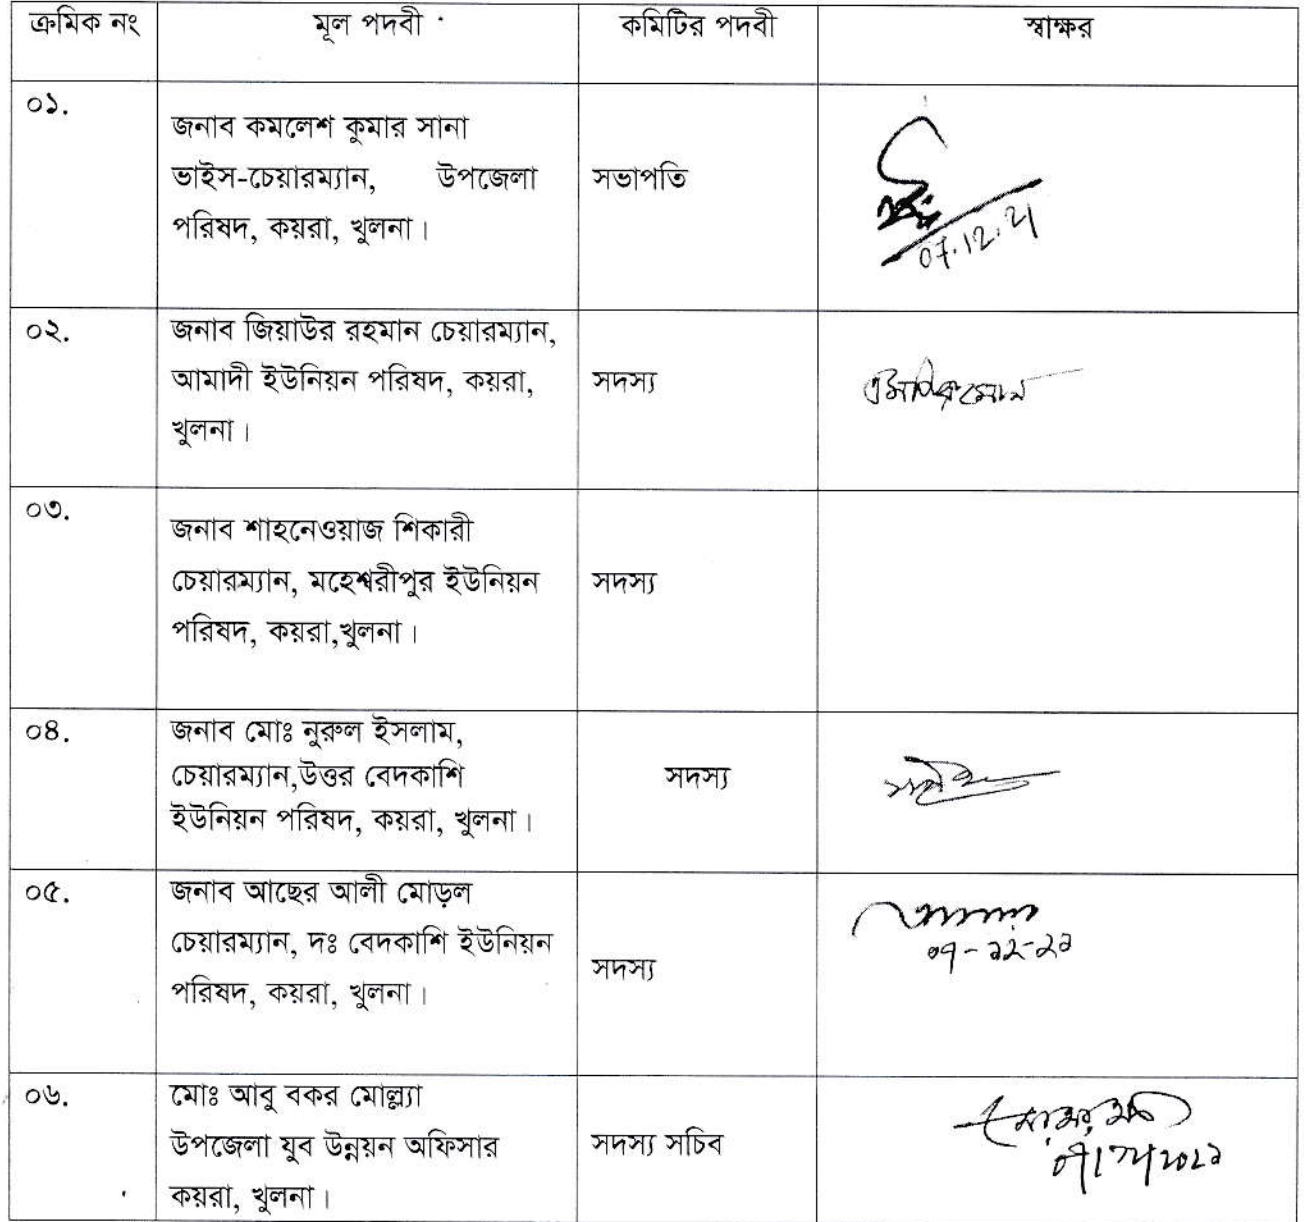 ক্রমিক নং মূল পদবী কমিটির পদবী স্বাক্ষর
০১.
জনাব কমলেশ কুমার সানা
ভাইস-চেয়ারম্যান, উপজেলা সভাপতি
পরিষদ, কয়রা, খুলনা।
07.12.21
০২. জনাব জিয়াউর রহমান চেয়ারম্যান,
আমাদী ইউনিয়ন পরিষদ, কয়রা, সদস্য
খুলনা।
০৩.
জনাব শাহনেওয়াজ শিকারী
চেয়ারম্যান, মহেশ্বরীপুর ইউনিয়ন সদস্য
পরিষদ, কয়রা,খুলনা।
০৪. জনাব মোঃ নুরুল ইসলাম,
চেয়ারম্যান,উত্তর বেদকাশি সদস্য
ইউনিয়ন পরিষদ, কয়রা, খুলনা।
০৫. জনাব আছের আলী মোড়ল
চেয়ারম্যান, দঃ বেদকাশি ইউনিয়ন সদস্য
পরিষদ, কয়রা, খুলনা।
০৭-১২-২১
০৬. মোঃ আবু বকর মোল্ল্যা
উপজেলা যুব উন্নয়ন অফিসার সদস্য সচিব
কয়রা, খুলনা।